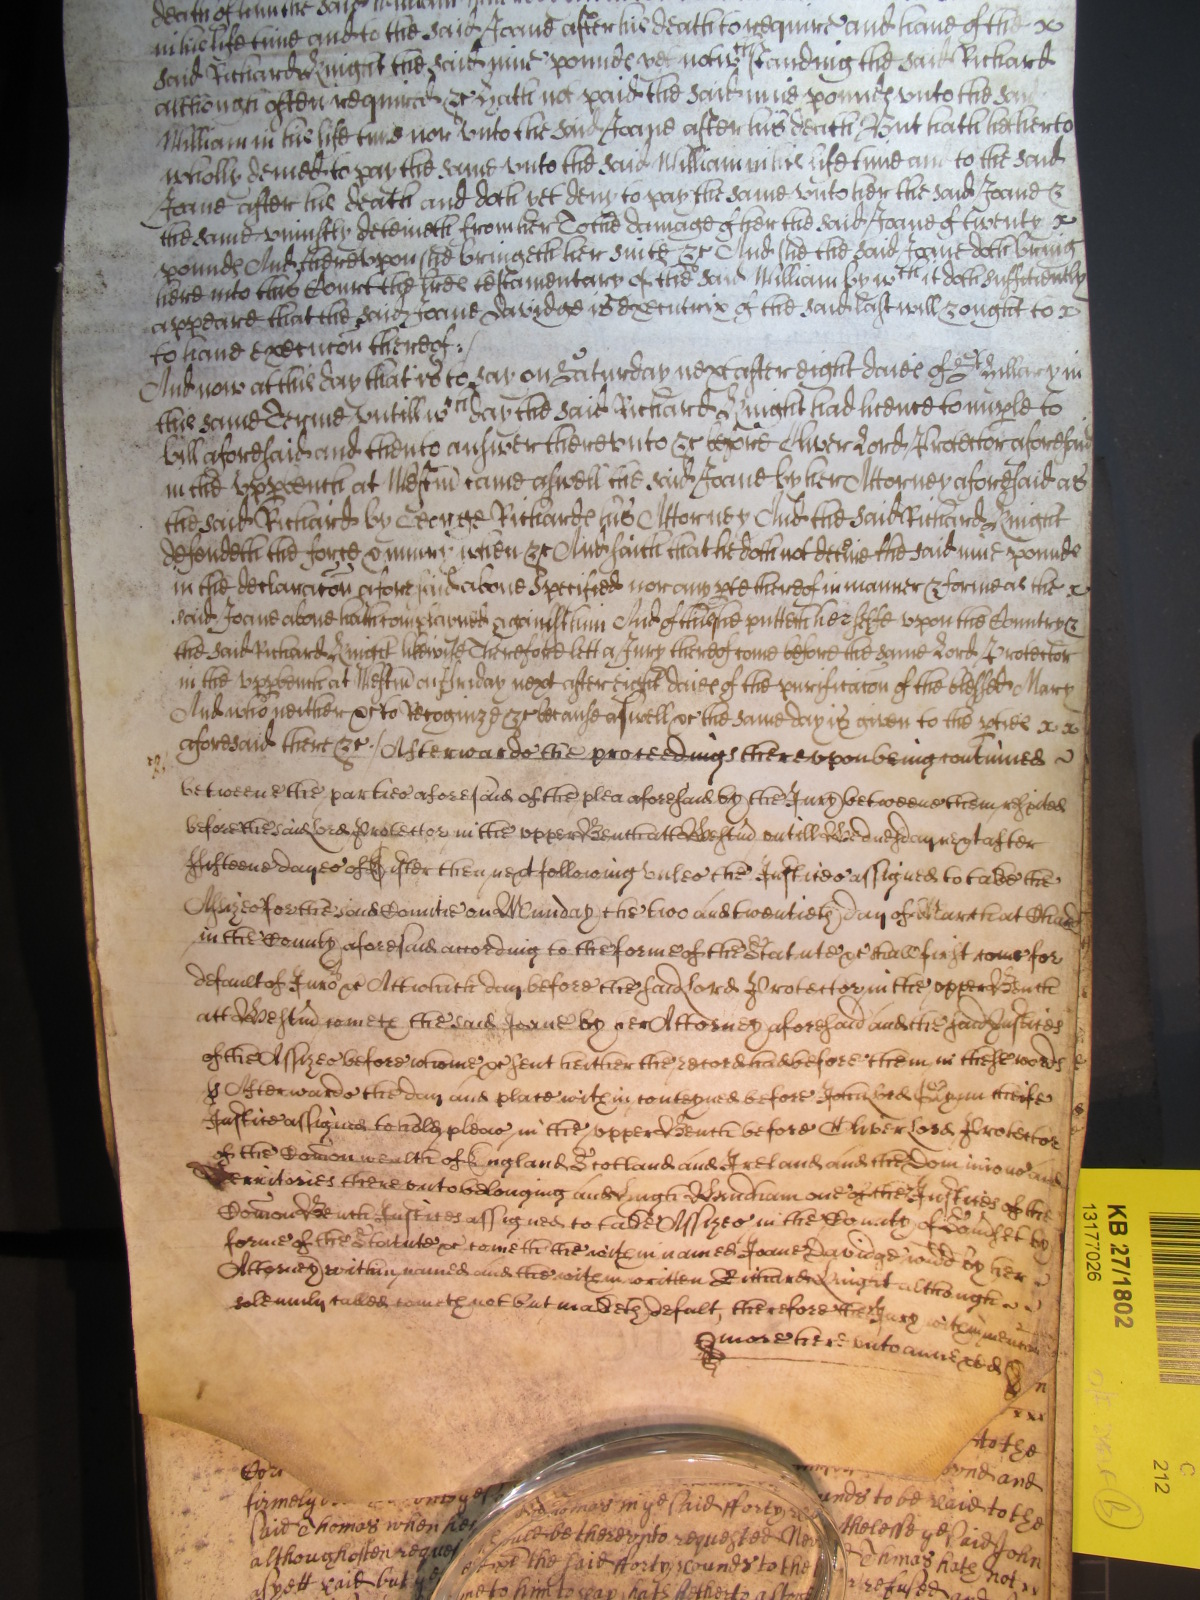 in his life time and to the said Joane after his death to require and have of the x
said Richard Knight the said nine pounds yet notwthstanding the said Richard
although often required &c hath not paid the said nine pounds unto the said
William in his life time nor unto the said Joane after his death But hath hetherto
wholly denied to pay the same unto the said William in his life time and to the said
Joane after his death and doth yet deny to pay the same unto her the said Joane &
the same uniustly deteineth from her To the damage of her the said Joane of twenty x
pounds And thereupon she bringeth her suite &c And she the said Joane doth bring
here into this Court the lres testamentary of the said William by wch it doth sufficiently
appeare that the said Joane Davidge is executrix of the said last will & ought to x
to have execucon thereof./
And now at this day that is to say on Saturday next after eight daies of St Hillary in
this same Terme untill wch day the said Richard Knight had licence to imple to
bill aforesaid and then to answer thereunto &c before Oliver Lord Protector aforesaid
in the upp bench at Westm came aswell the said Joane by her Attorney aforesaid as
the said Richard by George Richards his Attorney And the said Richard Knight
defendeth the force & iniury when &c And saith that he doth not deteine the said nine pounds
in the declaracon aforesaid above specified nor any pte thereof in manner & forme as the x
said Joane above hath complained against him And of this she putteth her selfe upon the Country &
the said Richard Knight likewise Therefore lett a Jury thereof come before the same Lord Protector
in the upp bench at Westm on Friday next after eight daies of the purificacon of the blessed Mary
And who neither &c to Recognize &c because aswell &c the same day is given to the pties x x
aforesaid there &c ./ Afterwards the proceedings thereupon being continued
betweene the parties aforesaid of the plea aforesaid by the Jury betweene them respited
before the said Lord Protector in the upper Bench att Westm untill Wednesday next after
fifteene dayes of Easter then next following unles the Justices assigned to take the
Assizes for the said Countie on Munday the two and twentieth day of March at Chard
in the County aforesaid according to the forme of the Statute &c shall first come for
default of Juro &c Att which day before the said Lord Protector in the upper Bench
att Westm cometh the said Joane by her Attorney aforesaid and the said Justices
of the Assizes before whome &c sent heither the record had before them in these words
Afterwards the day and place within conteyned before John Lord cheife
Justice assigned to hold pleas in the upper Bench before Oliver Lord Protector
of the Comon wealth of England Scotland and Ireland and the Dominions and
Territories thereunto belonging and Hugh Windham one of the Justices of the
Comon Bench Justices assigned to take Assizes in the County of Somset by
forme of the Statute &c cometh the within named Joane Davidge widd by her
Attorney within named and the within written Richard Knight although
solemnly called cometh not but maketh default, therefore the Jury within mencon
more here unto annexed
to the
ound and
formely
Thomas in ye said fforty
unds to be paid to the
said Thomas when he
thereunto requested Ne
thelesse ye said John
although often reque
the said fforty pounds to the
Thomas hath not
as yett paid but ye
me to him to pay hath hetherto
refused and
KB 27/1802
13177026
212